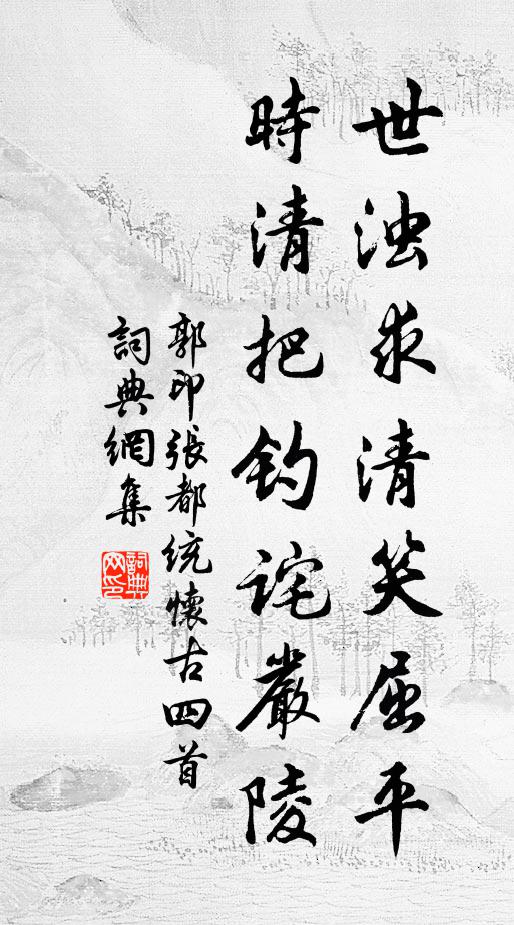 世浊求清笑屈平
時清把钓诧嚴陵
郭印張都统懷古四首
詞典網集
詞典網印